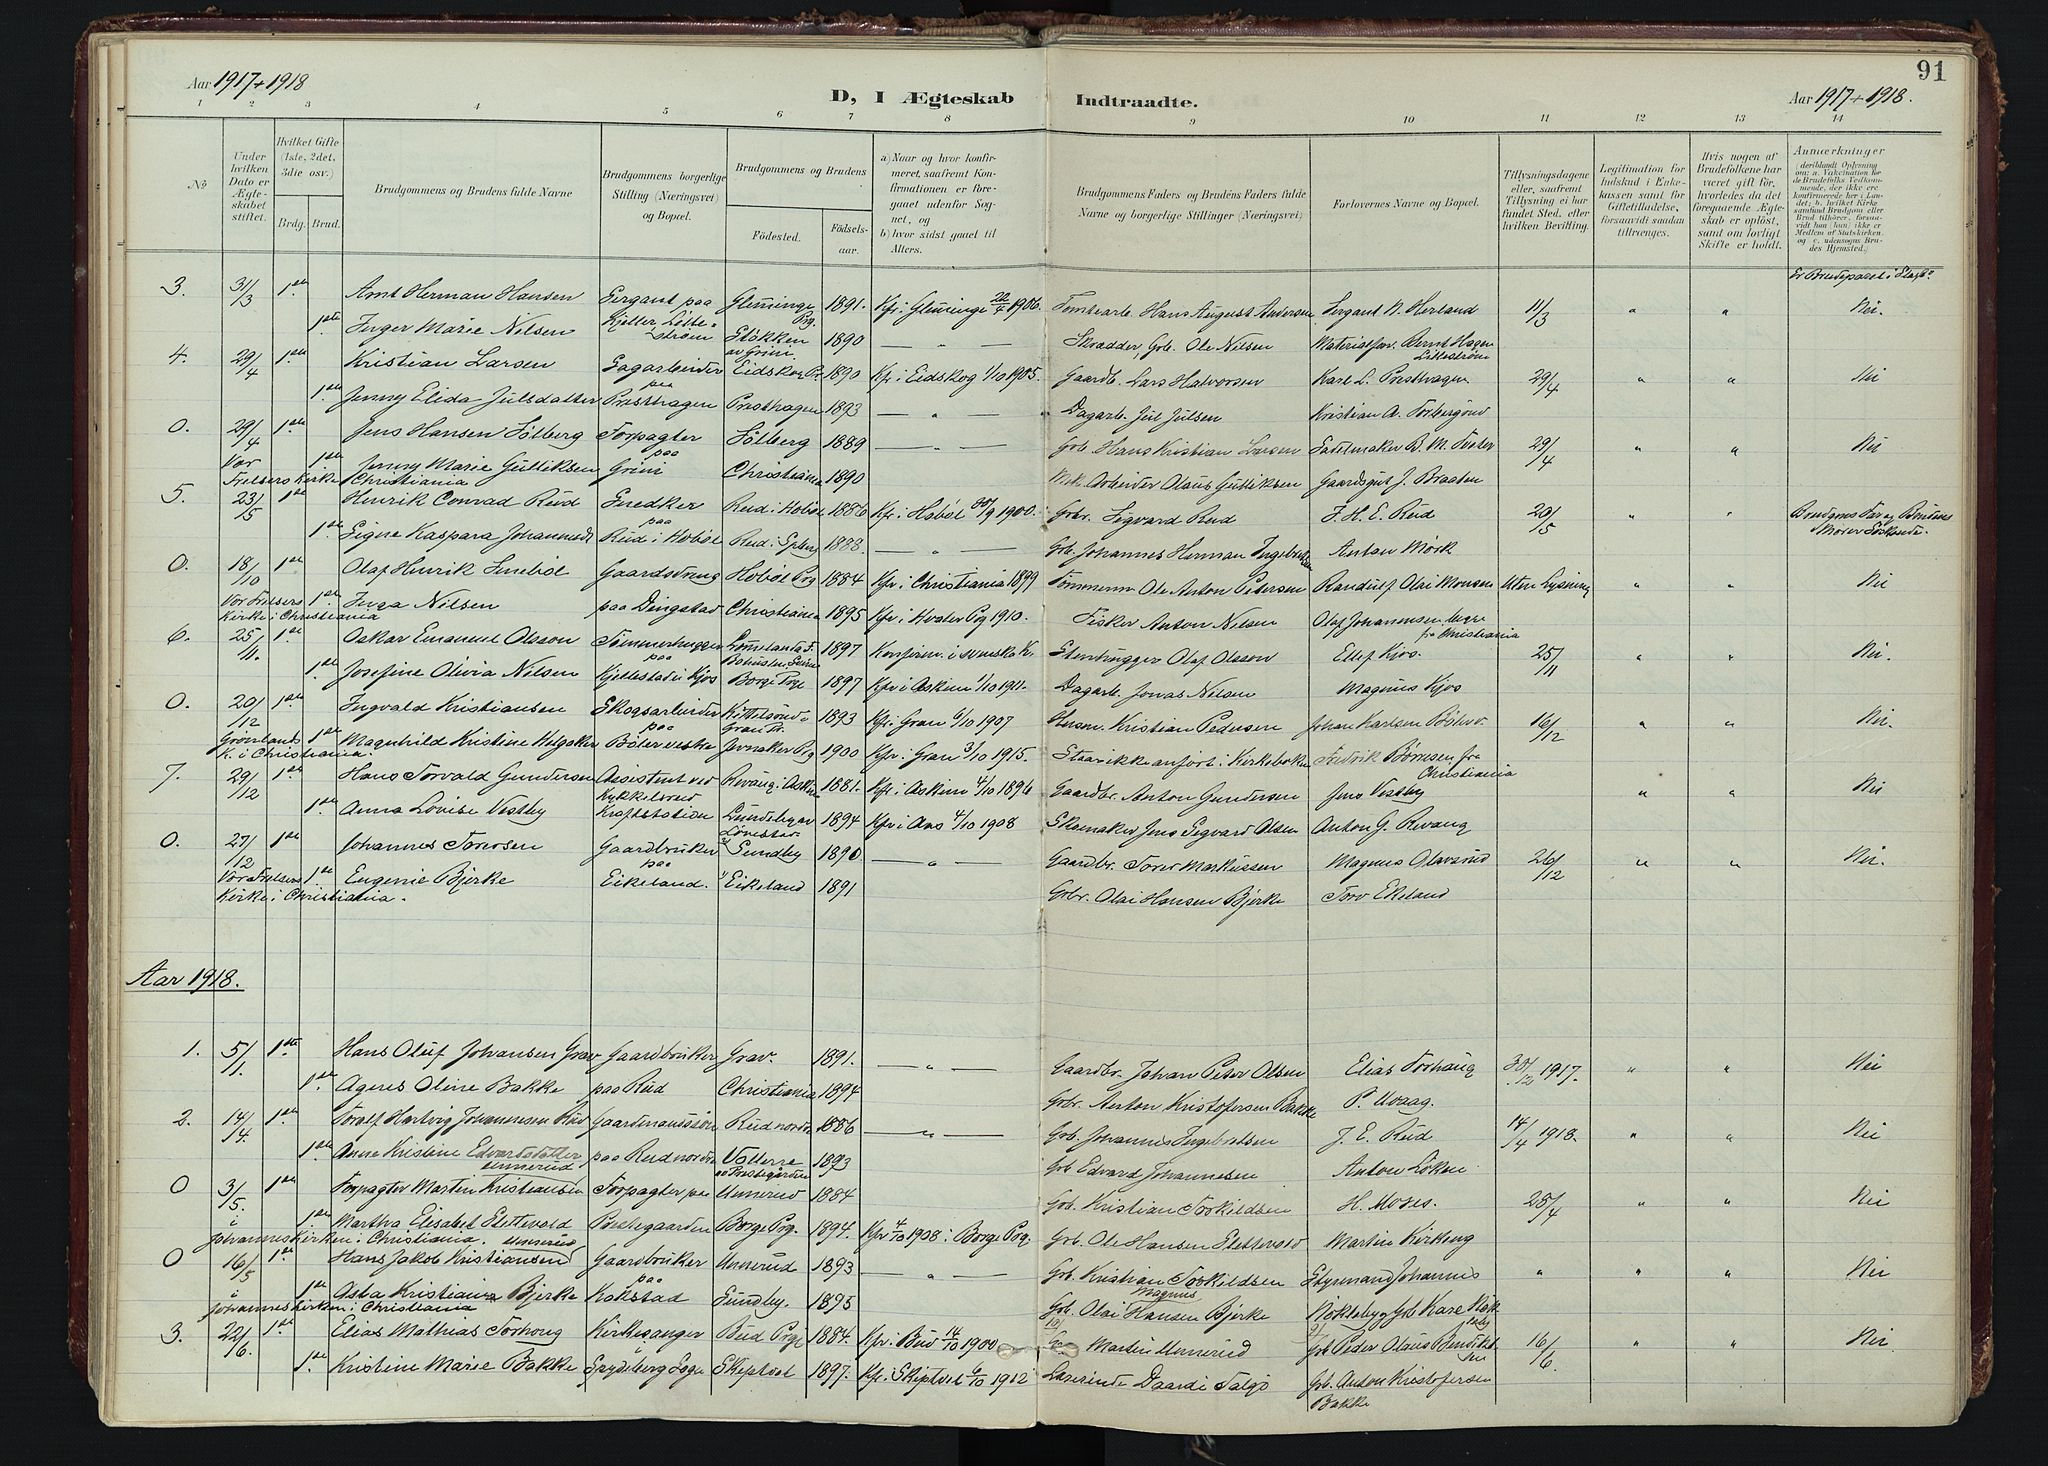 91
Aar 1917 + 1918
D, I Ægteskab Indtraadte.
Aar 1917 + 1918.
1 2 3 4 5 6 7 8 9 10 11 12 13 14
No
Under hvilken Dato er Ægteskabet stiftet.
Hvilket Gifte (1ste, 2det, 3die osv.)
Brdg. Brud.
Brudgommens og Brudens fulde Navne
Brudgommens borgerlige Stilling (Næringsvei) og Bopæl.
Brudgommens og Brudens
Fødested.
Fødselsaar.
a) Naar og hvor konfirmeret, saafremt Konfirmationen er foregaaet udenfor Sognet, og
b) hvor sidst gaaet til Alters.
Brudgommens Faders og Brudens Faders fulde Navne og borgerlige Stillinger (Næringsvei)
Forlovernes Navne og Bopæl.
Tillysningsdagene eller, saafremt Tillysning ei har fundet Sted, efter hvilken Bevilling.
Legitimation for Indskud i Enkekassen samt for Giftetilladelse, forsaavidt saadan tiltrænges.
Hvis nogen af Brudefolkene har været gift før, hvorledes da det foregaaende Ægteskab er opløst, samt om lovligt Skifte er holdt.
Anmærkninger
Er Brudeparet i Slægt?
3. 31/3 1ste Arnt Herman Hansen Sergant paa Glemminge Prg. 1891. Kfr. i Glemminge 22/4 1906. Tomtearb. Hans August Andersen Sergant N. Herland 11/3 " " Nei.
1ste Inger Marie Nilsen Kjeller Lillestrøm Støkken av Grini 1890 — " — Skrædder, Grb. Ole Nilsen Materialforv. Bernt Hagen Lillestrøm
4. 29/4 1ste Kristian Larsen Sagarbeider paa Eidskog Pr. 1890 Kfr. i Eidskog 1/10 1905. Gaardb. Lars Halvorsen Karl L. Presthagen 29/4 " " Nei
1ste Jenny Elida Julsdatter Presthagen Presthagen 1893 — " — Dagarb. Juil Julsen Kristian A. Torbergsrud
0. 29/4 1ste Jens Hansen Sølberg Forpagter paa Sølberg 1889 — — Grb. Hans Kristian Larsen Sadelmaker B. M. Tveter 29/4 " " Nei
Vor Frelsers Kirke Christiania 1ste Jenny Marie Gulliksen Grini Christiania 1890 Mek. Arbeider Olaus Gulliksen Gaardsgut J. Braaten
5. 23/5 1ste Henrik Conrad Rud Snedker paa Rud i Hobøl 1886 Kfr. i Hobøl 30/9 1900. Grbr. Sigvard Rud J. H. E. Rud 20/5 " " Brudgoms Far og Brudens Mor er Søskende.
1ste Signe Kaspara Johannesdt Rud i Hobøl Rud i Spberg 1888. — " — Grb. Johannes Herman Ingebretsen Anton Mørk
0. 18/10 1ste Olaf Henrik Smebøl Gaardsdreng Hobøl Prg 1884 Kfr. i Christiania 1899 Tømmerm. Ole Anton Petersen Randulf Olai Monsen Uten Lysning " " Nei
Vor Frelsers Kirke i Christiania 1ste Inga Nilsen paa Dingstad Christiania 1895 Kfr. i Hvaler Prg 1910. Fisker Anton Nilsen Olaf Johannesen begge fra Kristiania
6. 25/11. 1ste Oskar Emanuel Olsson Tømmerhugger paa 1897 Konfirm. i svenska K. Stenhugger Olaf Olsson Ellef Kjos. 25/11 " " Nei.
1ste Josefine Olivia Nilsen Kjellestad i Kjos Borge Prg. 1897 Kfr i Askim 1/10 1911. Dagarb. Jonas Nilsen Magnus Kjos
0. 20/12 1ste Ingvald Kristiansen Skogsarbeider paa Gran Pr. 1893 Kfr. i Gran 6/10 1907 Husm. Kristian Pedersen Johan Karlsen 16/12 " " Nei.
Grønlands K. i Christiania 1ste Magnhild Kristine Bøler vestre Jevnaker Prg 1900 Kfr. i Gran 3/10 1915. Staar ikke anført i Kirkeboken Fredrik Børresen fra Christiania
7. 29/12 1ste Hans Torvald Gundersen Assistent ved Revaug i Askim 1881. Kfr. i Askim 4/10 1896 Gaardbr. Anton Gundersen Jens Vestby " " Nei
1ste Anna Lovise Vestby Kykkelsrud Kraftstation Lundeby av Løvestad 1894 Kfr i Aas 4/10 1908 Skomaker Jens Sigvard Olsen Anton G. Revaug
0. 27/12 1ste Johannes Torersen Gaardbruker paa Sundby 1890 — " — Gaardbr. Torer Markussen Magnus Olavsrud 26/12 " " Nei.
Vor Frelsers Kirke i Christiania. 1ste Eugenie Bjerke Eikeland. Eikeland 1891 Grbr. Olai Hansen Bjerke Torv Ekeland
Aar 1918.
1. 5/1. 1ste Hans Oluf Johansen Grav Gaardbruker Grav. 1891. — " — Gaardbr. Johan Peter Olsen Elias Torhaug 30/12 1917. " " Nei
1ste Agnes Oline Bakke paa Rud Christiania 1894 Grbr. Anton Kristofersen Bakke P. Uvaag.
2. 14/4 1ste Toralf Hartvig Johannesen Rud Gaardmandssøn Rud nordre 1886 — " — Grb. Johannes Ingebretsen J. E. Rud 14/4 1918. " " Nei
1ste Anne Kristine Edvardsdatter paa Rud nordre av Prestegården 1893 Grb. Edvard Johannesen Anton Løken
0 3/5. 1ste Unnerud Forpagter Martin Kristiansen Forpagter paa Unnerud 1884 Grb. Kristian Torkildsen H. Moses. 28/4 " " Nei
i Johanneskirken i Christiania. 1ste Martha Elisabet Slettevold Prestegaarden Borge Prg. 1894. Kfr 4/10 1908 i Borge Prg Grb. Ole Hansen Slettevold Martin Kirkeng
0 16/5 1ste Unnerud Hans Jakob Kristiansen Gaardbruker paa Unnerud 1893 — " — Grb. Kristian Torkildsen Styrmand Johannes " " " Nei
i Johanneskirken i Christiania 1ste Asta Kristiania Bjerke Kokstad Sundby. 1895 Grb. Olai Magnus Hansen Bjerke
3. 22/6. 1ste Elias Mathias Torhoug Kirkesanger Bud Prgj 1884. Kfr. i Bud 14/10 1900 Martin Unnerud Grb Peder Olaus Bendiktsen 16/6 " " Nei
1ste Kristine Marie Bakke Spydeberg Sogn Skiptvet 1897. Kfr. i Skiptvet 6/10 1912 Læserinde Daardi Talgø Grb. Anton Kristofersen Bakke